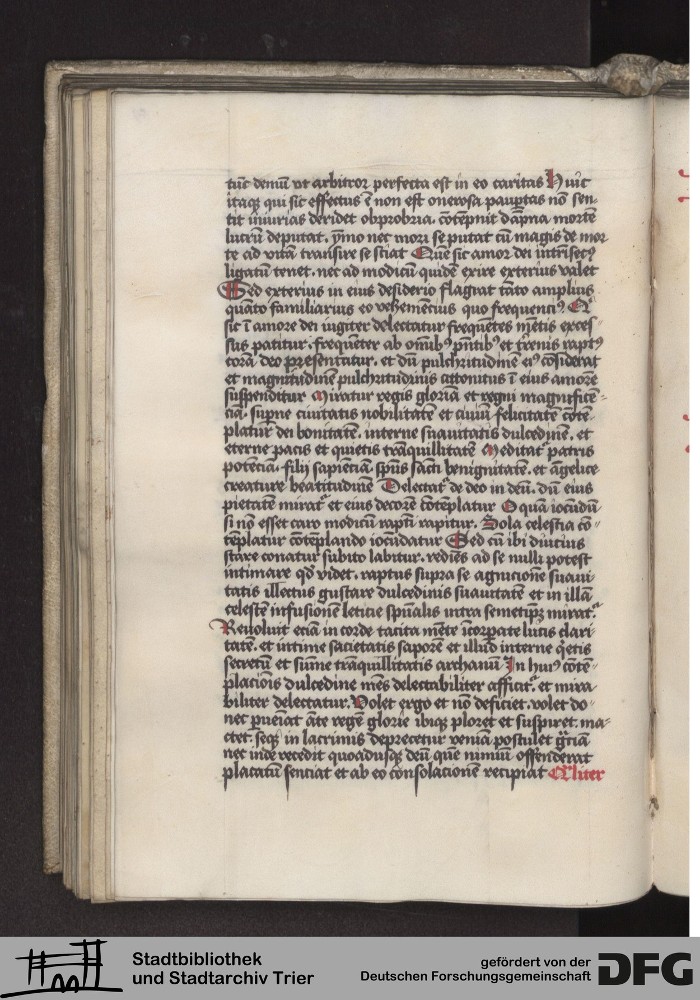 tūc demū vt arbitror perfecta est in eo caritas Huic
itaqȝ qui sic effectus ē non est onerosa paupertas nō sen-
tit iniurias deridet obprobria. cōtēpnit dāpna mortē
lucrū deputat. ymo nec mori se putat cū magis de mor
te ad vitā transire se sciat Quē sic amor dei intrīsecꝰ
ligatū tenet. nec ad modicū quidē exire exterius valet
Sed exterius in eius desiderio flagrat tāto amplius
quāto familiarius eo vehemēcius quo frequenciꝰ Qͥ
sic ī amore dei iugiter delectatur frequētes mētis exces-
sus patitur. frequēter ab omībꝰ pn̄tibꝰ et t̄renis raptꝰ
corā deo presentatur. et dū pulchritudinē eiꝰ cōsiderat
et magnitudinē pulchritudinis attonitus ī eius amore
suspenditur Miratur regis gloriā et regni magnificē-
ciā. supne ciuitatis nobilitatē et ciuiū felicitatē cōtē-
platur dei bonitatē. interne suauitatis dulcedinē. et
eterne pacis et quietis trāquillitatē Meditatͬ patris
potēciā. filij sapiēciā. spūs sācti benignitatē. et āgelice
creature beatitudinē Delectatͬ de deo in deū. dū eius
pietatē miratͬ et eius decorē cōtēplatur O quā iocūdū
si nō esset caro modicū rapti rapitur. Sola celestia cō-
tēplatur cōtēplando iocūdatur Sed cū ibi diucius
stare conatur subito labitur. rediēs ad se nulli potest
intimare qd̄ videt. raptus supra se agnicione suaui
tatis illectus gustare dulcedinis suauitatē et in illā
celestē infusionē leticie spūalis intra semetipȝ miratͬ
Reuoluit eciā in corde tacita mēte īcorpate lucis clari-
tatē. et intime sacietatis saporē et illud interne qͥetis
secretū et sūme trāquillitatis archanū In huiꝰ cōtē-
placiois dulcedine mēs delectabiliter afficitͬ. et mira
biliter delectatur. Volet ergo et nō deficiet. volet do-
nec pueīat āte regē glorie ibiqȝ ploret et suspiret. ma-
ctet. seqȝ in lacrimis deprecetur veniā postulet gr̄ciā
nec inde recedit quoadusqȝ deū quē nimiū offenderat
placatū senciat et ab eo consolacionē recipiat Aliter
Stadtbibliothek
und Stadtarchiv Trier
gefördert von der
Deutschen Forschungsgemeinschaft
DFG